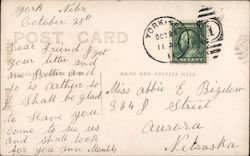 York Nebr
October 25th
POST CARD
Dear Friend I got
your letter and
am Better and
so is Arthur so
Shall be glad
to Have you
come to see us
and Shall look
for you
YORK
OCT
11 A
1
NAME AND ADDRESS HERE
Miss Abbie E Bigelow
324 J Street
Aurora
Nebraska